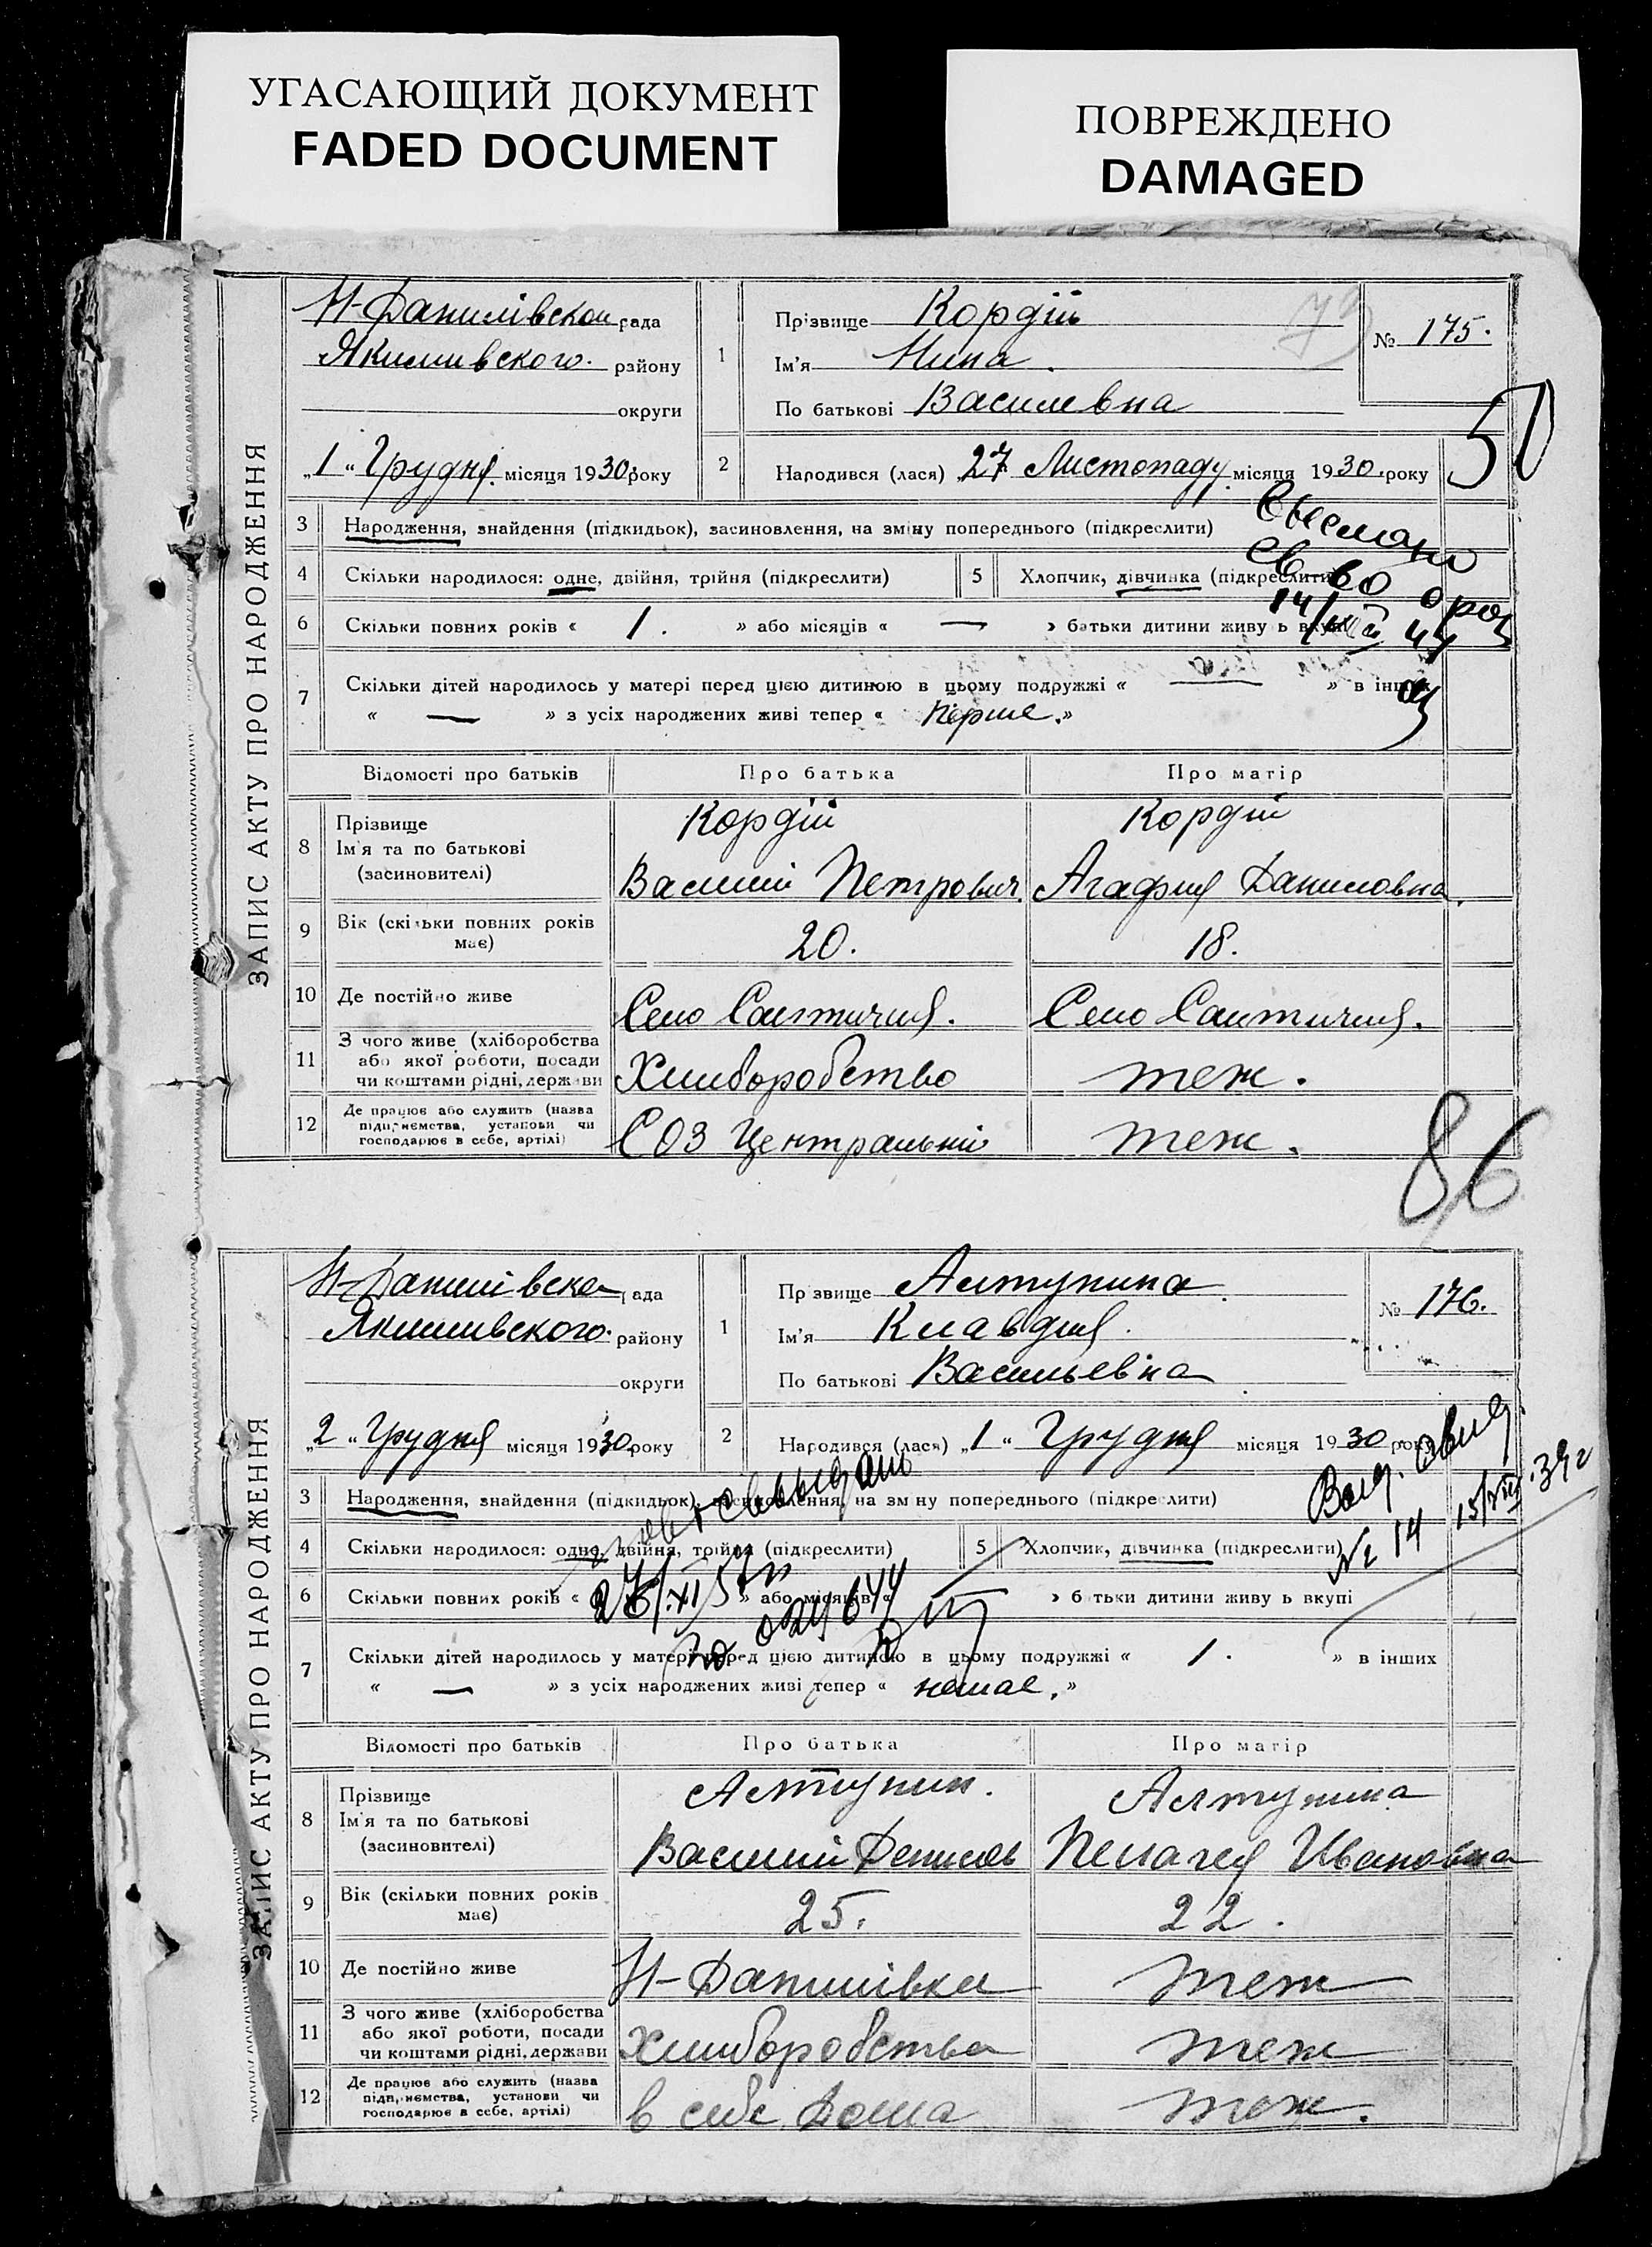 УГАСАЮЩИЙ ДОКУМЕНТ
FADED DOCUMENT
ПОВРЕЖДЕНО
DAMAGED
ЗАПИС АКТУ ПРО НАРОДЖЕННЯ
Н-Данилівскои рада
Якимивского. району
округи
„1“ Грудня. місяця 1930 року
1
Прізвище Кордій
Ім'я Нина.
По батькові Василевна
№ 175.
50
2
Народився (лася) 27 Листопаду місяця 1930. року
3 Народження, знайдення (підкидьок), засиновлення, на зміну попереднього (підкреслити)
4 Скільки народилося: одне, двійня, трійня (підкреслити)
5 Хлопчик, дівчинка (підкреслити)
6 Скільки повних років « 1. » або місяців « — » батьки дитини живуть вкупі
7 Скільки дітей народилось у матері перед цією дитиною в цьому подружжі « — » в інших
« — » з усіх народжених живі тепер « перше. »
Відомості про батьків Про батька Про матір
8 Прізвище
Ім'я та по батькові
(засиновителі)
Кордій
Василий Петрович.
Кордій
Агафия Даниловна.
9 Вік (скільки повних років має) 20. 18.
10 Де постійно живе Село Солтичия. Село Солтичия.
11 З чого живе (хліборобства
або якої роботи, посади
чи коштами рідні, держави
Хлиборобство теж.
12 Де працює або служить (назва
підприємства, установи чи
господарює в себе, артілі)
СОЗ Центральний теж.
86
ЗАПИС АКТУ ПРО НАРОДЖЕННЯ
Н-Данилівска рада
Якимивского. району
округи
„2“ Грудня місяця 1930 року
1
Прізвище Алтунина.
Ім'я Клавдия.
По батькові Васильевна
№ 176.
2
Народився (лася) „1“ Грудня місяця 1930 року
№ 14 15/VIII.39г
3 Народження, знайдення (підкидьок), засиновлення, на зміну попереднього (підкреслити)
4 Скільки народилося: одне, двійня, трійня (підкреслити)
5 Хлопчик, дівчинка (підкреслити)
6 Скільки повних років « » або місяців « » батьки дитини живуть вкупі
7 Скільки дітей народилось у матері перед цією дитиною в цьому подружжі « 1. » в інших
« — » з усіх народжених живі тепер « немае. »
Відомості про батьків Про батька Про матір
8 Прізвище
Ім'я та по батькові
(засиновителі)
Алтунин.
Василий Денисов
Алтунина
Пелагея Ивановна
9 Вік (скільки повних років має) 25. 22.
10 Де постійно живе Н-Данилівка теж
11 З чого живе (хліборобства
або якої роботи, посади
чи коштами рідні, держави
Хлиборобства теж
12 Де працює або служить (назва
підприємства, установи чи
господарює в себе, артілі)
в себе дома теж.